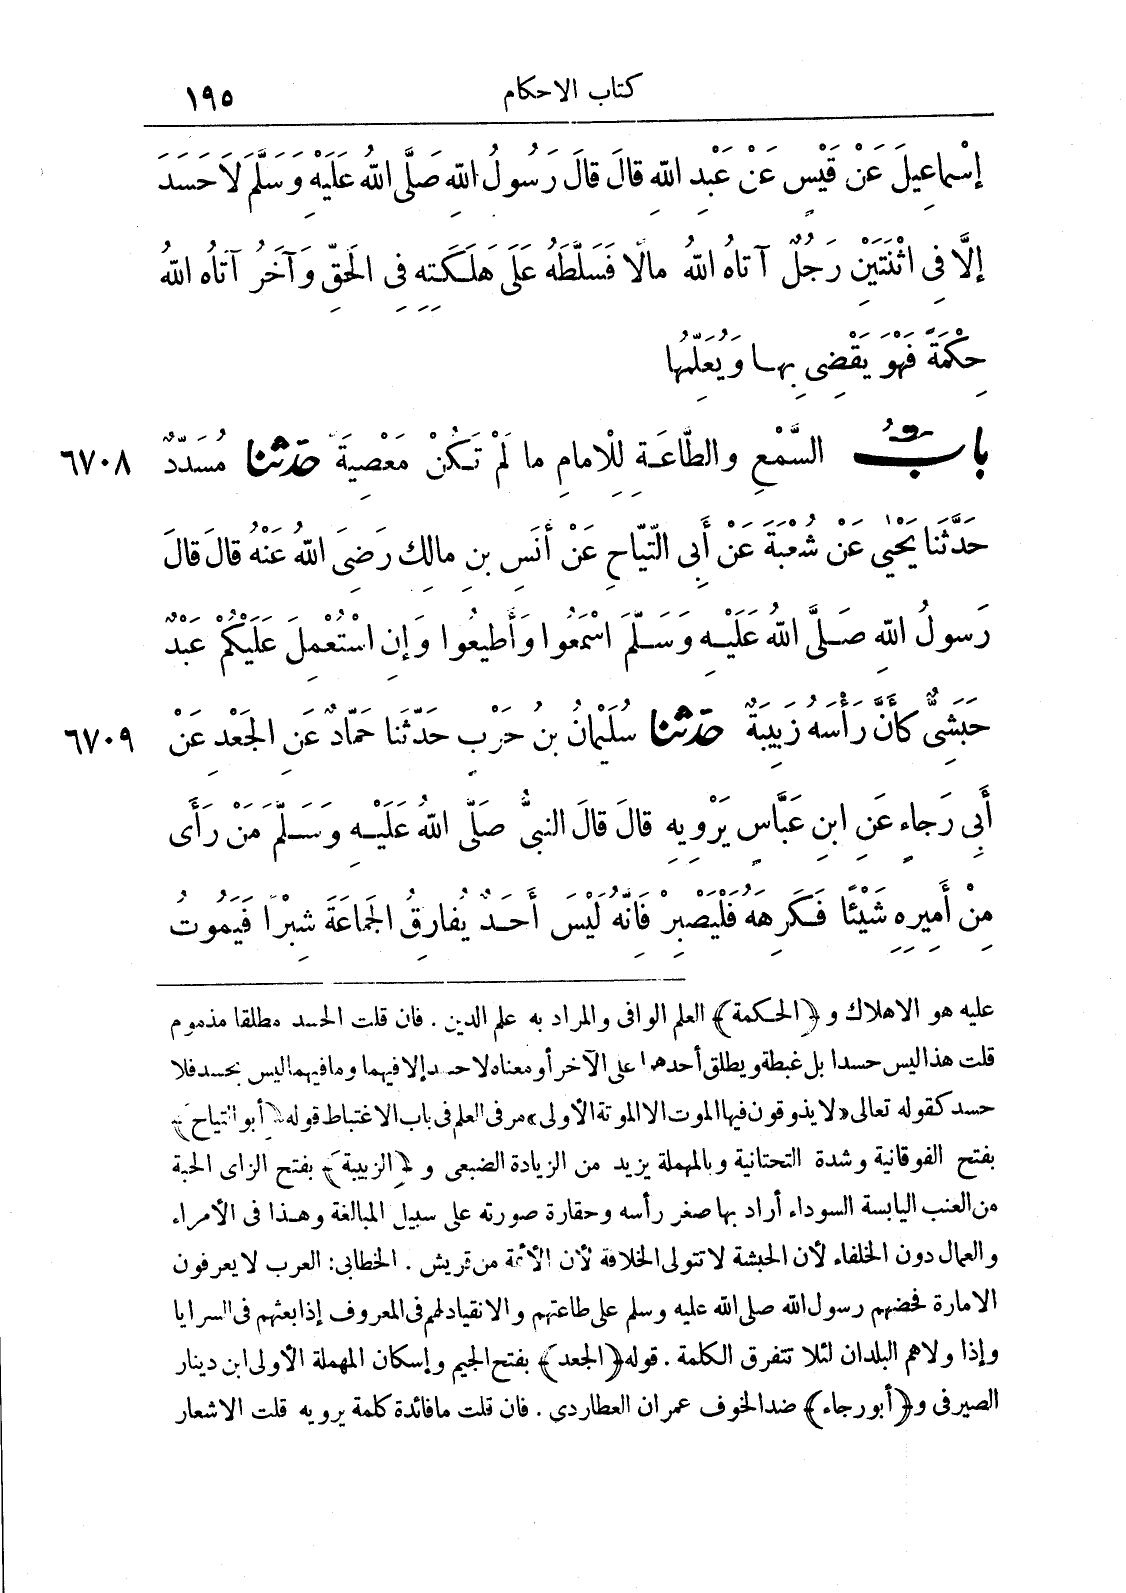 كتاب الاحكام ١٩٥
إِسْمَاعِيلَ عَنْ قَيْسٍ عَنْ عَبْدِ اللهِ قالَ قالَ رَسُولُ اللهِ صَلَّى اللهُ عَلَيْهِ وَسَلَّمَ لَا حَسَدَ
إلَّا فِى اثْنَتَيْنِ رَجُلٌ آتاهُ اللهُ مالًا فَسَلَّطَهُ عَلَى هَلَكَتِهِ فِى الحَقِّ وَآخَرُ آتاهُ اللهُ
حِكْمَةً فَهْوَ يَقْضِى بِها وَيُعَلِّمُها
بابُ السَّمْعِ والطَّاعَةِ لِلْامامِ ما لَمْ تَكُنْ مَعْصِيَةً حَدَّثَنَا مُسَدَّدٌ ٦٧٠٨
حَدَّثَنَا يَحْيَى عَنْ شُعْبَةَ عَنْ أَبِى التَّيَّاحِ عَنْ أَنَسِ بنِ مالِكٍ رَضِىَ اللهُ عَنْهُ قالَ قالَ
رَسولُ اللهِ صَلَّى اللهُ عَلَيْهِ وَسَلَّمَ اسْمَعُوا وَأَطِيعُوا وَإِنِ اسْتُعْمِلَ عَلَيْكُمْ عَبْدٌ
حَبَشِىٌّ كأَنَّ رَأْسَهُ زَبِيبَةٌ حَدَّثَنَا سُلَيْمانُ بنُ حَرْبٍ حَدَّثَنا حَمَّادٌ عَنِ الجَعْدِ عَنْ ٦٧٠٩
أَبِى رَجاءٍ عَنِ ابنِ عَبَّاسٍ يَرْوِيهِ قالَ قالَ النبىُّ صَلَّى اللهُ عَلَيْهِ وَسَلَّمَ مَنْ رَأَى
مِنْ أَمِيرِهِ شَيْئًا فَكَرِهَهُ فَلْيَصْبِرْ فَانَّهُ لَيْسَ أَحَدٌ يُفارِقُ الجَماعَةَ شِبْرًا فَيَمُوتُ
عليه هو الاهلاك و ﴿الحكمة﴾ العلم الوافى والمراد به علم الدين . فان قلت الحسد مطلقا مذموم
قلت هذا ليس حسدا بل غبطة ويطلق أحدهما على الآخر أو معناه لا حسد إلا فيهما وما فيهما ليس بحسد فلا
حسد كقوله تعالى «لا يذوقون فيها الموت الا الموتة الأولى» مر فى العلم فى باب الاغتباط قوله ﴿أبو التياح﴾
بفتح الفوقانية وشدة التحتانية وبالمهملة يزيد من الزيادة الضبعى و ﴿الزبيبة﴾ بفتح الزاى الحبة
من العنب اليابسة السوداء أراد بها صغر رأسه وحقارة صورته على سبيل المبالغة وهذا فى الأمراء
والعمال دون الخلفاء لأن الحبشة لا تتولى الخلافة لأن الأئمة من قريش . الخطابى: العرب لا يعرفون
الامارة فحضهم رسول الله صلى الله عليه وسلم على طاعتهم والانقياد لهم فى المعروف إذا بعثهم فى السرايا
وإذا ولاهم البلدان لئلا تتفرق الكلمة . قوله ﴿الجعد﴾ بفتح الجيم وإسكان المهملة الأولى ابن دينار
الصيرفى و﴿أبو رجاء﴾ ضد الخوف عمران العطاردي . فان قلت ما فائدة كلمة يرويه قلت الاشعار